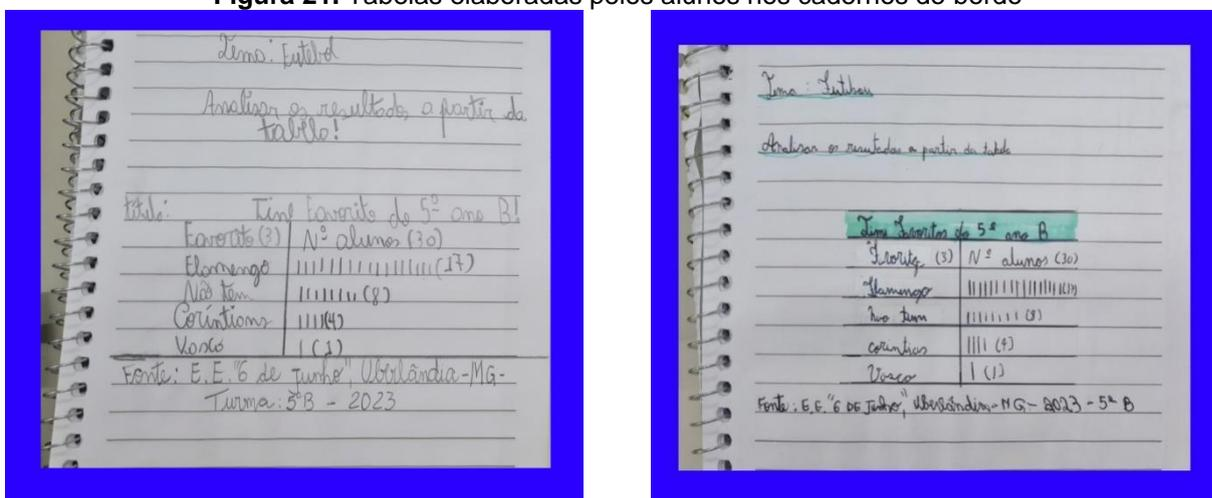 Figura 21. Tabelas elaboradas pelos alunos nos cadernos de bordo
Tema: Futebol
Analisar os resultados a partir da
tabela!
título: Time Favorito do 5º ano B!
Favorito (3) Nº alunos (30)
Flamengo IIIIIIIIIIIIIIIII (17)
Não tem IIIIIIII (8)
Coríntians IIII (4)
Vasco I (1)
Fonte: E.E. "6 de junho", Uberlândia-MG-
Turma: 5ºB - 2023
Tema: Futebou
Analisar os resutados a partir da tabela
Time Favoritos do 5º ano B
(3) Nº alunos (30)
Flamengo IIIIIIIIIIIIIIIII (17)
não tem IIIIIIII (8)
corintias IIII (4)
Vasco I (1)
Fonte: E.E. "6 DE Junho", Uberlândia-MG-2023-5ª B